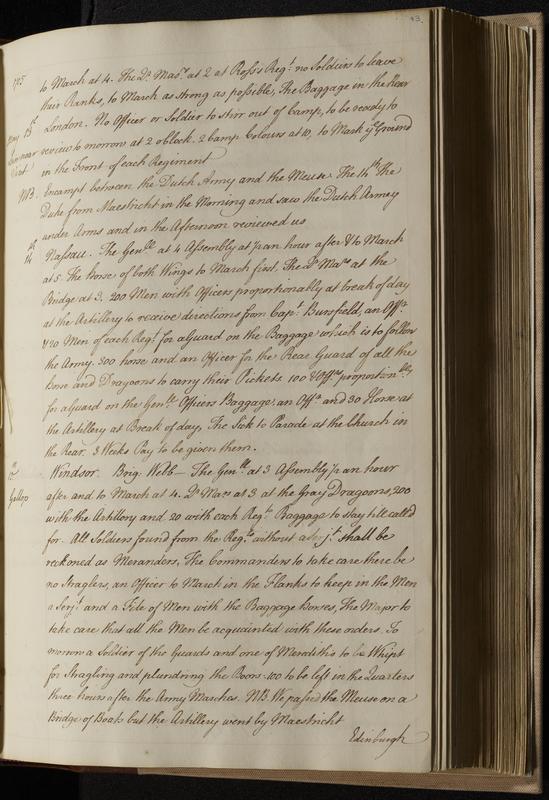 13
1705 to March at 4. The Qr. Masrs. at 2 at Ross's Regt. no Soldiers to leave
their Ranks, to March as strong as possible, The Baggage in the Rear
May 13th London. No Officer or Soldier to stirr out of Camp, to be ready to
near review to morrow at 2 oClock. 2 Camp Colours at 10, to Mark ye Ground
in the Front of each Regiment
NB. Encampt between the Dutch Army and the Meuse. The 14th. The
Duke from Maestricht in the Morning and saw the Dutch Armey
under Arms and in the Afternoon reviewed us
14th Nassau. The Genll. at 4 Assembly at ½ an hour after & to March
at 5. The horse of both Wings to March first. The Qr. Mars at the
Bridge at 3. 200 Men with Officers proportionably at break of day
at the Artillery to receive directions from Capt. Bunsfield, an Offr.
& 20 Men of each Regt. for a Guard on the Baggage which is to follow
the Army. 300 horse and an Officer for the Rear Guard of all the
Horse and Dragoons to carry their Pickets 100 & Offrs. proportionbly
for a Guard on the Genll. Officers Baggage, an Offr. and 30 Horse at
the Artillery at Break of day, The Sick to Parade at the Church in
the Rear. 3 Weeks Pay to be given them.
15th Windsor. Brig. Webb— The Genll. at 3 Assembly ½ an hour
Gallop after and to March at 4. Qr. Mars at 3 at the Gray Dragoons, 200
with the Artillery and 20 with each Regts. Baggage to stay till call'd
for. All Soldiers found from the Regts. without a Serjt. shall be
reckoned as Meranders, The Commanders to take care there be
no Straglers, an Officer to March in the Flanks to keep in the Men
a Serjt. and a File of Men with the Baggage Horses, The Major to
take care that all the Men be acquainted with these orders. To
morrow a Soldier of the Guards and one of Merediths to be Whipt
for Stragling and plundring the Boors. 100 to be left in the Quarters
three hours after the Army Marches. NB. We passed the Meuse on a
Bridge of Boats but the Artillery went by Maestricht
Edinburgh